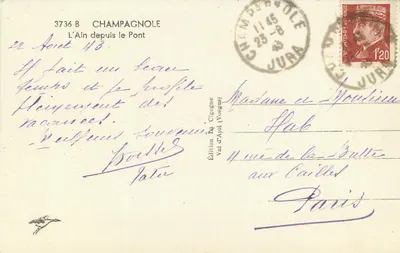 3736 B CHAMPAGNOLE
L'Ain depuis le Pont
22 Août 43
Il fait un beau
temps et je profite
pleinement des
vacances.
Meilleurs souvenirs
Tatie
Edition La Cigogne
Val d'Ajol (Vosges)
CHAMPAGNOLE
11 45
23 -8
43
JURA
1F20
JURA
Madame et Monsieur
Hab
11 rue de la Butte
aux Cailles
Paris